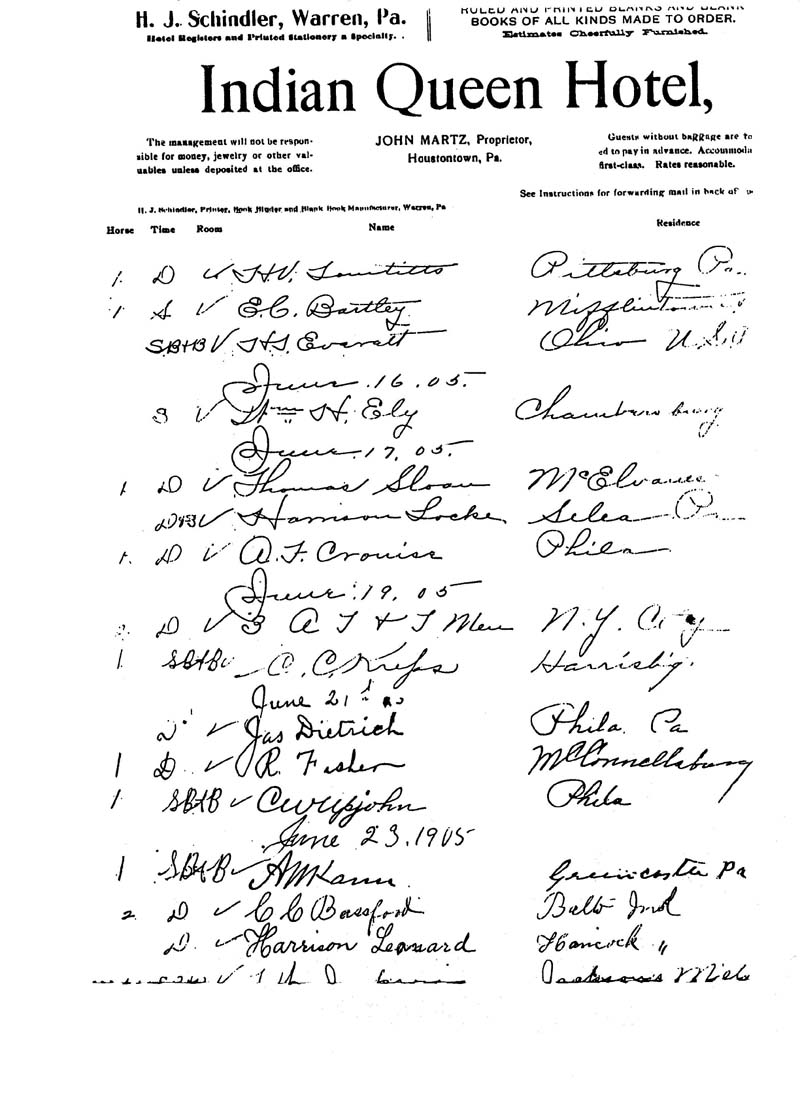 H. J. Schindler, Warren, Pa.
Hotel Registers and Printed Stationery a Specialty.
RULED AND PRINTED BLANKS AND BLANK
BOOKS OF ALL KINDS MADE TO ORDER.
Estimates Cheerfully Furnished.
Indian Queen Hotel,
The management will not be respon-
sible for money, jewelry or other val-
uables unless deposited at the office.
JOHN MARTZ, Proprietor,
Houstontown, Pa.
Guests without baggage are to
ed to pay in advance. Accommoda
first-class. Rates reasonable.
See Instructions for forwarding mail in back of
H. J. Schindler, Printer, Book Binder and Blank Book Manufacturer, Warren, Pa
Horse Time Room Name Residence
1. D ✓ Pittsburg Pa.
1 S ✓ E.C. Bartley Mifflintown
SB+B ✓ H.S. Everett Ohio U.S.A
June 16.05.
3 ✓ Wm H. Ely Chambersburg
June 17, 05.
1 D ✓ Thomas Sloan
✓ Harrison Locke Pa
1. D ✓ A.F. Crouise Phila
June 19, 05
2. D ✓ 3 A T & T Men N.Y. City
1 SB+B ✓ C. Kreps Harrisbg.
June 21st 05
2 ✓ Jas Dietrich Phila. Pa
1 D ✓ R. Fisher McConnellsburg
1 SB+B ✓ CW Upjohn Phila
June 23, 1905
1 SB+B ✓ Greencastle Pa
2. D ✓ C C Bassford Balto Md
D. ✓ Harrison Leonard Hancock "
✓